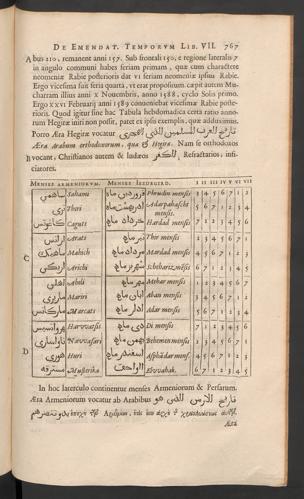 DE EMENDAT. TEMPORVM LIB. VII. 767
A bus 210, remanent anni 157. Sub frontali 150, e regione lateralis 7
in angulo communi habes feriam primam, quæ cum charactere
neomeniæ Rabie posterioris dat VI feriam neomeniæ ipsius Rabie.
Ergo vicesima fuit feria quarta, vt erat propositum. cæpit autem Mu-
charram illius anni X Nouembris, anno 1588, cyclo Solis primo.
Ergo XXVI Februarij anni 1589 conueniebat vicesimæ Rabie poste-
rioris. Quod igitur sine hac Tabula hebdomadica certa ratio anno-
rum Hegiræ iniri non possit, patet ex ipsis exemplis, quæ addidimus.
Porro Æra Hegiræ vocatur تاريخ العرب المسلمين اللذي الهجري
Æra Arabum orthodoxorum, qua & Hegira. Nam se orthodoxos
B vocant: Christianos autem & Iudæos الكفر, Refractarios, infi-
ciatores.
MENSES ARMENIORVM. MENSES IEZDEGIRD. I II III IV V VI VII
Sahami فروردين ماه Phrudin mensis 3 4 5 6 7 1 2
Thari Adarpahascht mensis. 5 6 7 1 2 3 4
Cagutz خرداد ماه Hardad mensis 7 1 2 3 4 5 6
Arats تير ماه Thir mensis 2 3 4 5 6 7 1
C Mahich مرداد ماه Mardad mensis 4 5 6 7 1 2 3
Arichi شهرير ماه Schehariz mensis 6 7 1 2 3 4 5
Ahili مهر ماه Mehar mensis 1 2 3 4 5 6 7
Mariri ابان ماه Aban mensis 3 4 5 6 7 1 2
Marcats ادار ماه Adar mensis 5 6 7 1 2 3 4
D دي ماه Di mensis 7 1 2 3 4 5 6
Navvasari بهمن ماه Behemen mensis 2 3 4 5 6 7 1
Hori اسفندر ماه 4 5 6 7 1 2 3
Musterika 6 7 1 2 3 4 5
In hoc laterculo continentur menses Armeniorum & Persarum.
Æra Armeniorum vocatur ab Arabibus تاريخ الارمن اللذي هو
Æra